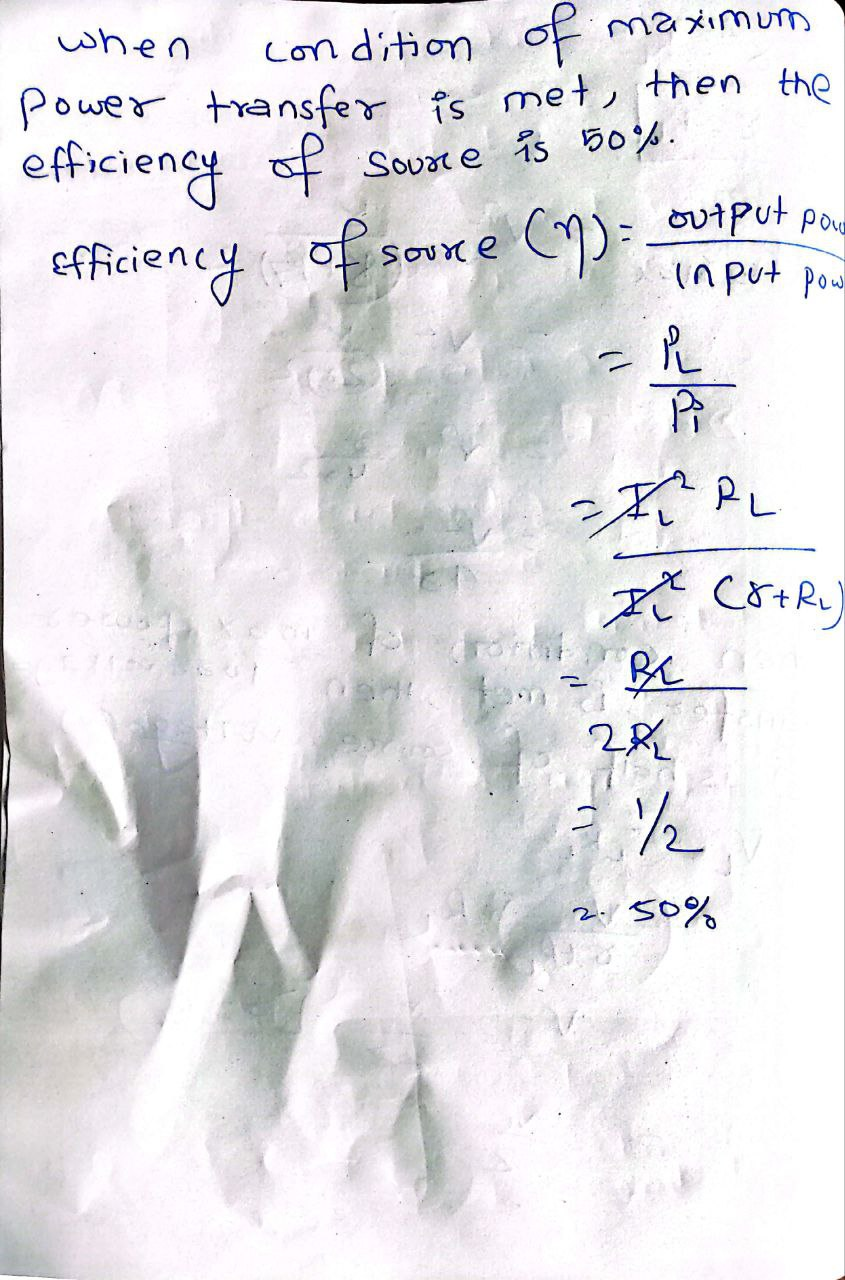 when condition of maximum
power transfer is met, then the
efficiency of source is 50%.
Efficiency of source (η) = output pow
input pow
= PL
Pi
= IL² RL
IL² (r+RL)
= RL
2RL
= 1/2
= 50%